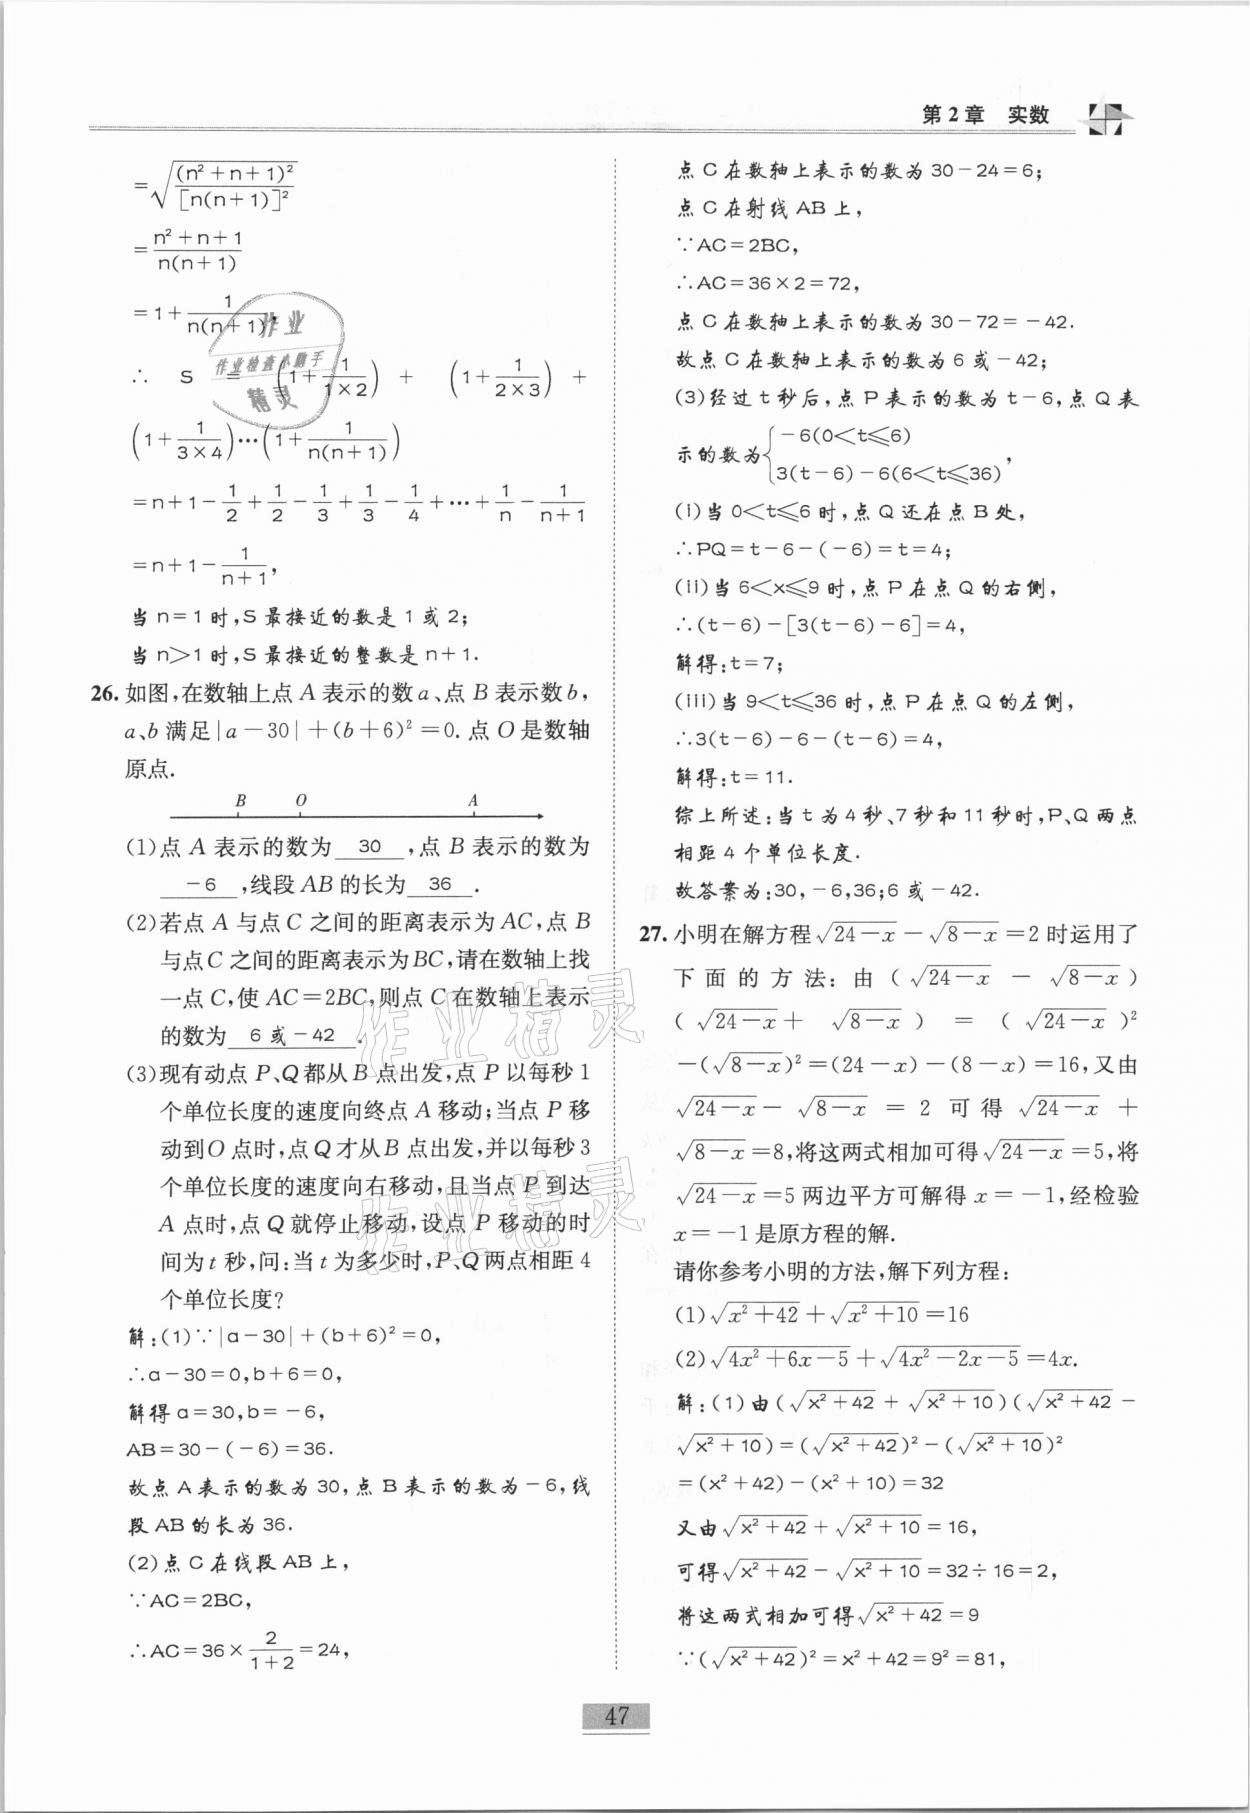 第2章 实数
=√((n²+n+1)²/[n(n+1)]²)
=(n²+n+1)/(n(n+1))
=1+1/(n(n+1)),
∴ S = (1+1/(1×2)) + (1+1/(2×3)) +
(1+1/(3×4))…(1+1/(n(n+1)))
=n+1-1/2+1/2-1/3+1/3-1/4+…+1/n-1/(n+1)
=n+1-1/(n+1),
当n=1时,S最接近的数是1或2;
当n>1时,S最接近的整数是n+1.
26.如图,在数轴上点A表示的数a、点B表示数b,
a、b满足|a-30|+(b+6)²=0.点O是数轴
原点.
B O A
(1)点A表示的数为 30 ,点B表示的数为
-6 ,线段AB的长为 36 .
(2)若点A与点C之间的距离表示为AC,点B
与点C之间的距离表示为BC,请在数轴上找
一点C,使AC=2BC,则点C在数轴上表示
的数为 6或-42 .
(3)现有动点P、Q都从B点出发,点P以每秒1
个单位长度的速度向终点A移动;当点P移
动到O点时,点Q才从B点出发,并以每秒3
个单位长度的速度向右移动,且当点P到达
A点时,点Q就停止移动,设点P移动的时
间为t秒,问:当t为多少时,P、Q两点相距4
个单位长度?
解:(1)∵|a-30|+(b+6)²=0,
∴a-30=0,b+6=0,
解得a=30,b=-6,
AB=30-(-6)=36.
故点A表示的数为30,点B表示的数为-6,线
段AB的长为36.
(2)点C在线段AB上,
∵AC=2BC,
∴AC=36×2/(1+2)=24,
点C在数轴上表示的数为30-24=6;
点C在射线AB上,
∵AC=2BC,
∴AC=36×2=72,
点C在数轴上表示的数为30-72=-42.
故点C在数轴上表示的数为6或-42;
(3)经过t秒后,点P表示的数为t-6,点Q表
示的数为{-6(0<t≤6)
3(t-6)-6(6<t≤36),
(i)当0<t≤6时,点Q还在点B处,
∴PQ=t-6-(-6)=t=4;
(ii)当6<x≤9时,点P在点Q的右侧,
∴(t-6)-[3(t-6)-6]=4,
解得:t=7;
(iii)当9<t≤36时,点P在点Q的左侧,
∴3(t-6)-6-(t-6)=4,
解得:t=11.
综上所述:当t为4秒、7秒和11秒时,P、Q两点
相距4个单位长度.
故答案为:30,-6,36;6或-42.
27.小明在解方程√(24-x)-√(8-x)=2时运用了
下面的方法:由(√(24-x) - √(8-x))
(√(24-x)+ √(8-x)) = (√(24-x))²
-(√(8-x))²=(24-x)-(8-x)=16,又由
√(24-x)- √(8-x) = 2可得√(24-x) +
√(8-x)=8,将这两式相加可得√(24-x)=5,将
√(24-x)=5两边平方可解得x=-1,经检验
x=-1是原方程的解.
请你参考小明的方法,解下列方程:
(1)√(x²+42)+√(x²+10)=16
(2)√(4x²+6x-5)+√(4x²-2x-5)=4x.
解:(1)由(√(x²+42)+√(x²+10))(√(x²+42)-
√(x²+10))=(√(x²+42))²-(√(x²+10))²
=(x²+42)-(x²+10)=32
又由√(x²+42)+√(x²+10)=16,
可得√(x²+42)-√(x²+10)=32÷16=2,
将这两式相加可得√(x²+42)=9
∵(√(x²+42))²=x²+42=9²=81,
47
作业
作业检查小助手
精灵
作业精灵
作业精灵